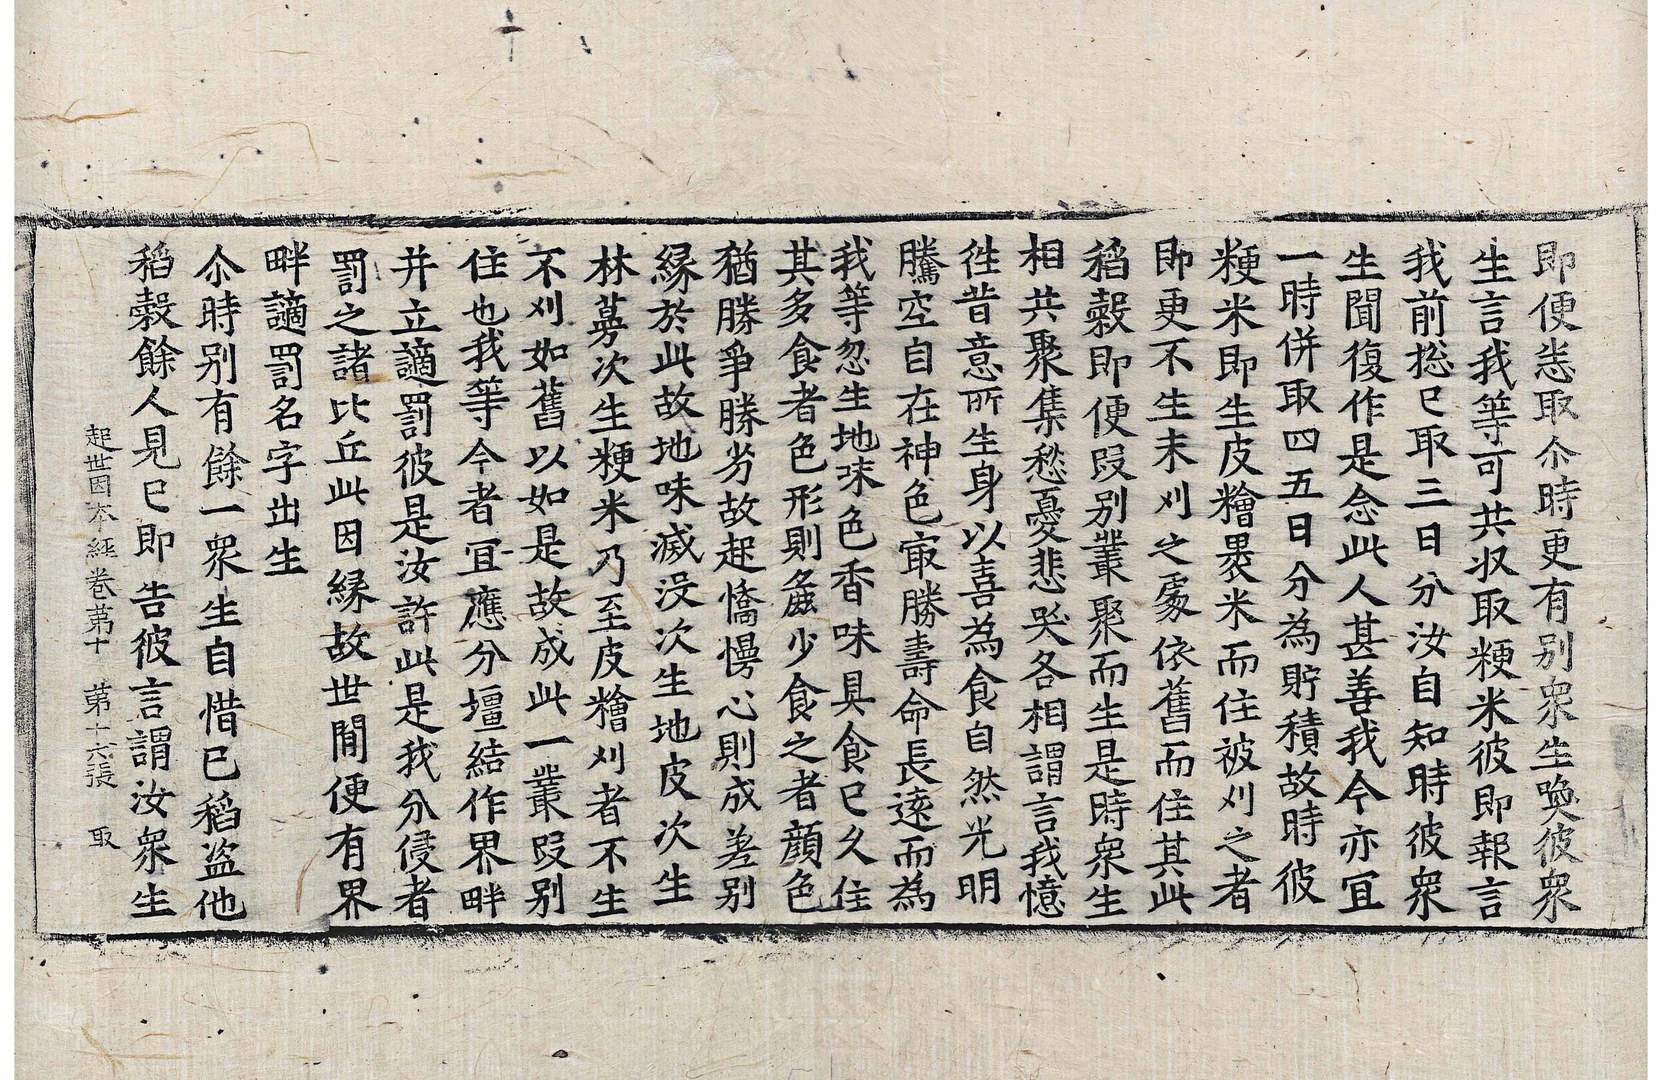 即便恙取尒時更有别衆生喚彼衆
生言我等可共収取粳米彼即報言
我前捴已取三日分汝自知時彼衆
生聞復作是念此人甚善我今亦冝
一時併取四五日分為貯積故時彼
粳米即生皮糩褁米而住被刈之者
即更不生未刈之處依舊而住其此
稻穀即便段别叢聚而生是時衆生
相共聚集愁憂悲哭各相謂言我憶
徃昔意所生身以喜為食自然光明
騰空自在神色㝡勝壽命長遠而為
我等忽生地味色香味具食已久住
其多食者色形則麁少食之者顔色
猶勝爭勝劣故起憍慢心則成差别
緣於此故地味滅没次生地皮次生
林蔓次生粳米乃至皮糩刈者不生
不刈如舊以如是故成此一叢段别
住也我等今者冝應分壃結作界畔
并立讁罰彼是汝許此是我分侵者
罰之諸比丘此因緣故世間便有界
畔讁罰名字出生
尒時别有餘一衆生自惜已稻盜他
稻穀餘人見已即告彼言謂汝衆生
起世因本經卷第十　第十六張　取